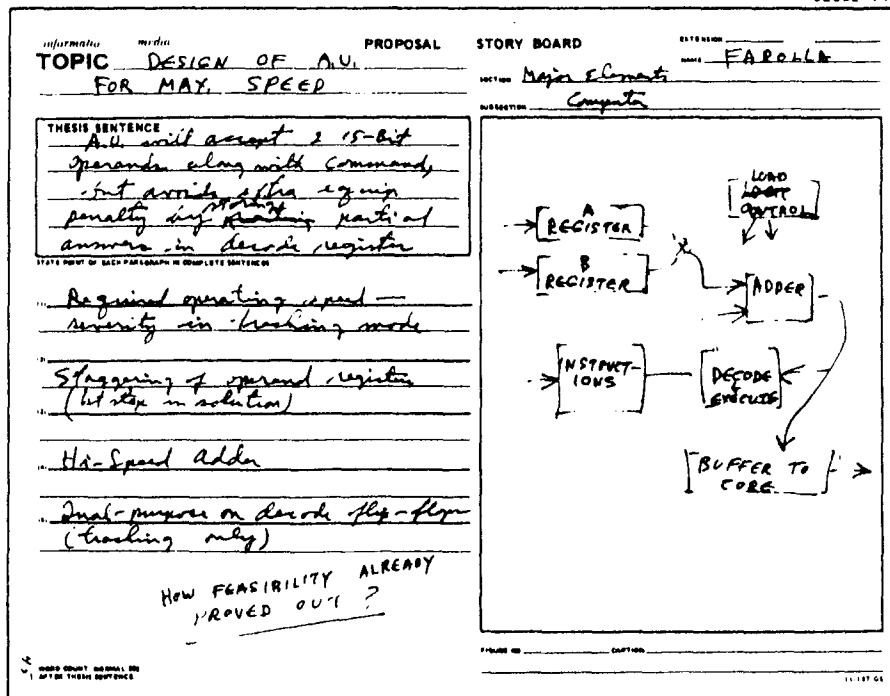 informatio media
PROPOSAL STORY BOARD
EXTENSION
TOPIC DESIGN OF A.U.
FOR MAX. SPEED
NAME FAROLLA
SECTION Major Elements
SUBSECTION Computer
THESIS SENTENCE
A.U. will accept 2 15-Bit
operands along with command,
but avoids extra equip
penalty by storing partial
answers in decode register
STATE POINT OF EACH PARAGRAPH IN COMPLETE SENTENCES
Required operating speed —
severity in tracking mode
Staggering of operand registers
(1st step in solution)
Hi-Speed Adder
Dual-purpose on decode flip-flops
(tracking only)
HOW FEASIBILITY ALREADY
PROVED OUT?
WORD COUNT NORMAL 500
AFTER THESIS SENTENCE
A
REGISTER
B
REGISTER
LOAD
CONTROL
ADDER
INSTRUCT-
IONS
DECODE
&
EXECUTE
BUFFER TO
CORE
FIGURE NO CAPTION